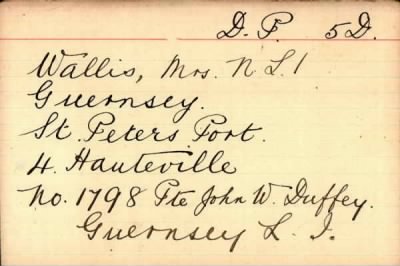 D. P. 5D.
Wallis, Mrs. N L 1
Guernsey.
St. Peters Port.
4. Hauteville
No. 1798 Pte John W. Duffey.
Guernsey L. I.